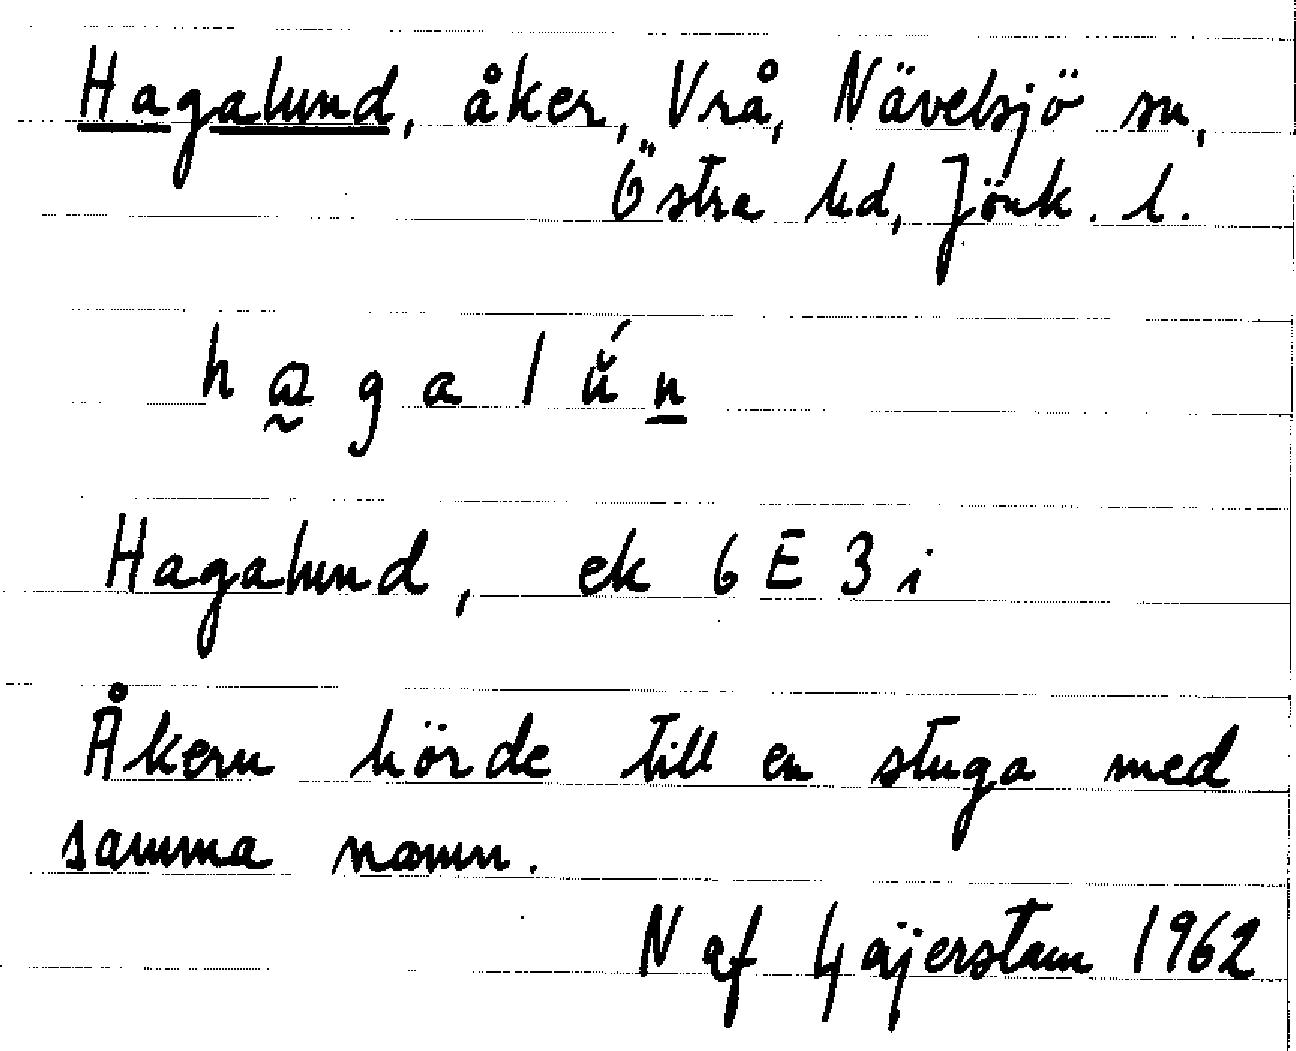 Hagalund, åker, Vrå, Nävelsjö sn,
Östra hd, Jönk. l.
ha̰galŭ́n̲
Hagalund, ek 6 E 3 i
Åkern hörde till en stuga med
samma namn.
N af Gäjerstam 1962